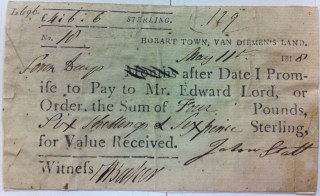 £ 5 : 6 : 6 STERLING. 129
No. 18 HOBART TOWN, VAN DIEMEN'S LAND.
May 11th 1818
Days Months after Date I Prom-
ise to Pay to Mr. Edward Lord, or
Order, the Sum of Five Pounds,
Six Shillings & Six pence Sterling,
for Value Received.
John
Witness